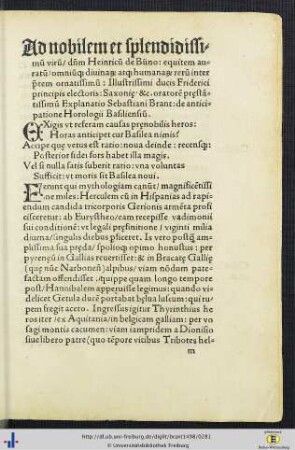 Ad nobilem et splendidissi-
mũ virũ/ dñm Heinricũ de Büno: equitem au-
ratũ/ omniũq; diuinaꝝ atq; humanaꝝ rerũ inter
pretem ornatissimũ: Illustrissimi ducis Friderici
principis electoris: Saxonię &c. oratorẽ prestã-
tissimũ Explanatio Sebastiani Brant: de antici-
patione Horologii Basiliensiũ.
EXigis vt referam causas prenobilis heros:
Horas anticipet cur Basilea nimis?
Accipe quę vetus est ratio: noua deinde: recensq;:
Posterior fidei fors habet illa magis.
Vel si nulla satis suberit ratio: vna voluntas
Sufficit: vt moris sit Basilea noui.
FErunt qui mythologiam canũt/ magnificẽtissi
me moles: Herculem cũ in Hispanias ad rapi-
endam candida tricorporis Gerionis armẽta profi
cisceretur: ab Eurystheo/ eam recepisse vadimonii
sui conditionẽ: vt legali prefinitione/ viginti milia
diurna/ singulis diebus pficeret. Is vero postq̃ am-
plissima sua pręda/ spolioq; opimo honustus: per
pyrenęũ in Gallias reuertisset: & in Bracatę Gallię
(quę nũc Narbonẽ) alpibus/ viam nõdum pate-
factam offendisset: quippe quam longo tempore
post/ Hannibalem apperuisse legimus: quando vi-
delicet Getula ducẽ portabat bylua luscum: qui ru-
pem fregit aceto. Ingressus igitur Thyrinthius he
ros iter/ ex Aquitania/ in belgicam galliam: per vo
sagi montis cacumen: viam iampridem a Dionisio
siue libero patre (quo tẽpore vitibus Tribotes hel-
m
http://dl.ub.uni-freiburg.de/diglit/brant1498/0281
© Universitätsbibliothek Freiburg